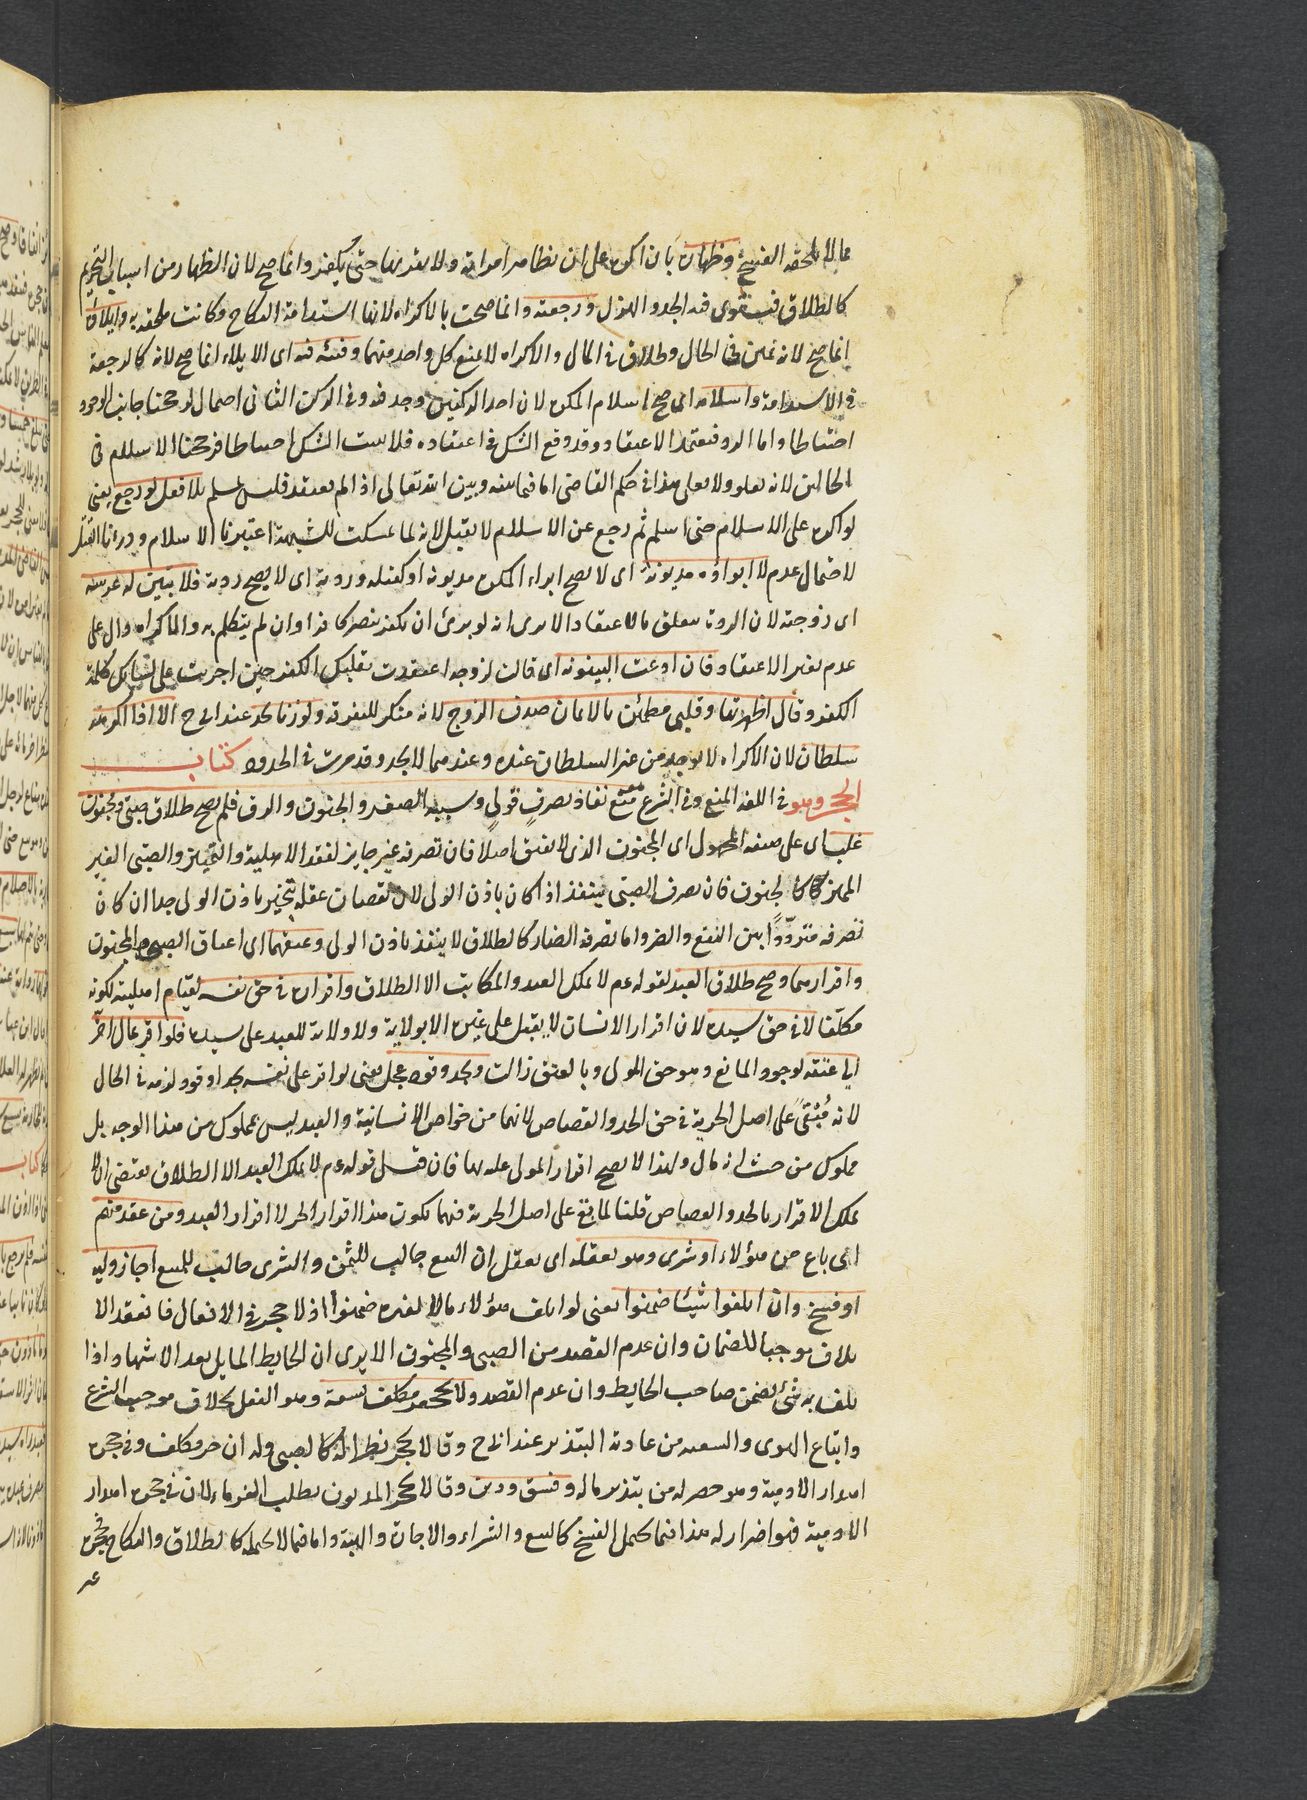 مما لا يلحقه الفسخ وظهاره بان اكره على ان يظاهر امرأته ولا يقربها حتى يكفر وانما صح لان الظهار من اسباب التحريم
كالطلاق فيستوى فيه الجد والهزل ورجعته وانما صحت بالاكراه لانها استدامة النكاح وكانت ملحقة به وايلاؤه
انما صح لانه يمين فى الحال وطلاق فى المال والاكراه لا يمنع كل واحد منهما وفيئه فيه اى الايلاء انما صح لانه كالرجعة
فى الاستدامة واسلامه اى صح اسلام المكره لان احد الركنين وجد فيه وفى الركن الثانى احتمال فرجحنا جانب الوجود
احتياطا واما الردة فتعتمد الاعتقاد وقد وقع الشك فى اعتقاده فلا يثبت الشك احتياطا فرجحنا الاسلام فى
الحالين لانه يعلو ولا يعلى هذا فى حكم القاضى اما فيما بينه وبين الله تعالى اذا لم يعتقد فليس بمسلم بلا قتل لو رجع يعنى
لو اكره على الاسلام حتى اسلم ثم رجع عن الاسلام لا يقتل لانه لما تمسكت الشبهة اعتبرنا الاسلام ودرءنا القتل
لاحتمال عدمه لا ابراؤه مديونه اى لا يصح ابراء المكره مديونه او كفيله وردته اى لا يصح ردته فلا تبين له عرسه
اى زوجته لان الردة يتعلق بالاعتقاد الا يرى انه لو نوى ان يكفر يصير كافرا وان لم يتكلم به والاكراه دال على
عدم تغير الاعتقاد فان ادعت البينونة اى قالت لزوجها اعتقدت بقلبك الكفر حين اجريت على لسانك كلمة
الكفر وقال اظهرتها وقلبى مطمئن بالايمان صدق الزوج لانه منكر للفرقة ولو زنا يحد عند ابى ح الا اذا اكرهه
سلطان لان الاكراه لا يوجد من غير السلطان عنده وعندهما لا يحد وقد مرت فى الحدود كتاب
الحجر وهو فى اللغة المنع وفى الشرع منع نفاذ تصرف قولى وسببه الصغر والجنون والرق فلم يصح طلاق صبى ومجنون
غلب اى على صيغة المجهول اى المجنون الذى لا يفيق اصلا فان تصرفه غير جايز لفقد الاهلية والتمييز والصبى الغير
المميز كالمجنون فان تصرف الصبى ينفذ اذا كان باذن الولى لان نقصان عقله يتجبر باذن الولى هذا ان كان
تصرفه مترددا بين النفع والضر واما تصرفه الضار كالطلاق لا ينفذ باذن الولى وعتقهما اى اعتاق الصبى والمجنون
واقرارهما وصح طلاق العبد لقوله عم لا يملك العبد والمكاتب الا الطلاق واقراره فى حق نفسه لقيام اهليته لكونه
مكلفا لا فى حق سيده لان اقرار الانسان لا يقبل على غيره الا بولاية ولا ولاية للعبد على سيده فلو اقر بمال اخر
الى عتقه لوجود المانع وهو حق المولى وبالعتق زالت وبحد وقود عجل يعنى لو اقر على نفسه بحد او قود لزمه فى الحال
لانه مبقى على اصل الحرية فى حق الحد والقصاص لانهما من خواص الانسانية والعبد ليس بمملوك من هذا الوجه بل
مملوك من حيث انه مال ولهذا لا يصح اقرار المولى عليه بهما فان قيل قوله عم لا يملك العبد الا الطلاق يقتضى ان لا
يملك الاقرار بالحد والقصاص قلنا لما بقى على اصل الحرية فيهما يكون هذا اقرار الحر لا اقرار العبد ومن عقد منهم
اى باع من هؤلاء او شرى وهو يعقله اى يعقل ان البيع جالب للثمن والشرى جالب للمبيع اجاز وليه
او فسخ وان اتلفوا شيئا ضمنوا يعنى لو اتلف هؤلاء مالا لغيره ضمنوا اذ لا حجر فى الافعال فانعقد الا
تلاف موجبا للضمان وان عدم القصد من الصبى والمجنون الا يرى ان الحايط المايل بعد الاشهاد اذا
تلف به شئ يضمن صاحب الحايط وان عدم القصد ولا يحجر مكلف بسفه وهو العمل بخلاف موجب الشرع
واتباع الهوى والسفه من عادته التبذير عند ابى ح وقالا يحجر نظرا له كالصبى وله ان حر مكلف وفى حجره
اهدار الادمية وهو حصر له من تبذير ماله وفسق ودين وقالا يحجر المديون بطلب الغرماء لان فى حجره اهدار
الادمية فهو اضرار له هذا فيما يحتمل الفسخ كالبيع والشراء والاجارة والهبة واما فيما لا يحتمله كالطلاق والنكاح فحجره